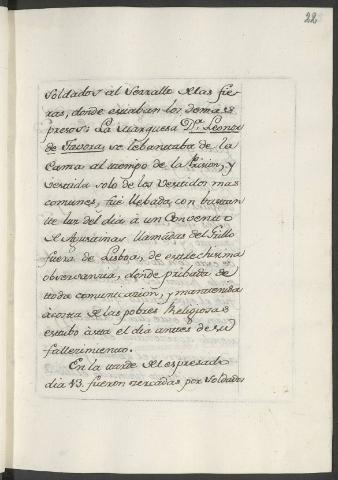 22
soldados al Serrallo de las fie-
ras, donde estaban los demas
presos. La Marquesa D.ª Leonor
de Tavora, se lebantaba de la
Cama al tiempo de la Prision, y
vestida solo de los Vestidos mas
comunes, fue llebada, con bastan-
te luz del dia à un Convento
de Agustinas, llamadas del Grillo
fuera de Lisboa, de estrechisima
observancia, donde pribada de
toda comunicazion, y mantenida
à costa de las pobres Religiosas
estubo asta el dia antes de su
fallezimiento.
En la tarde del espresado
dia 13. fueron zercadas por soldados